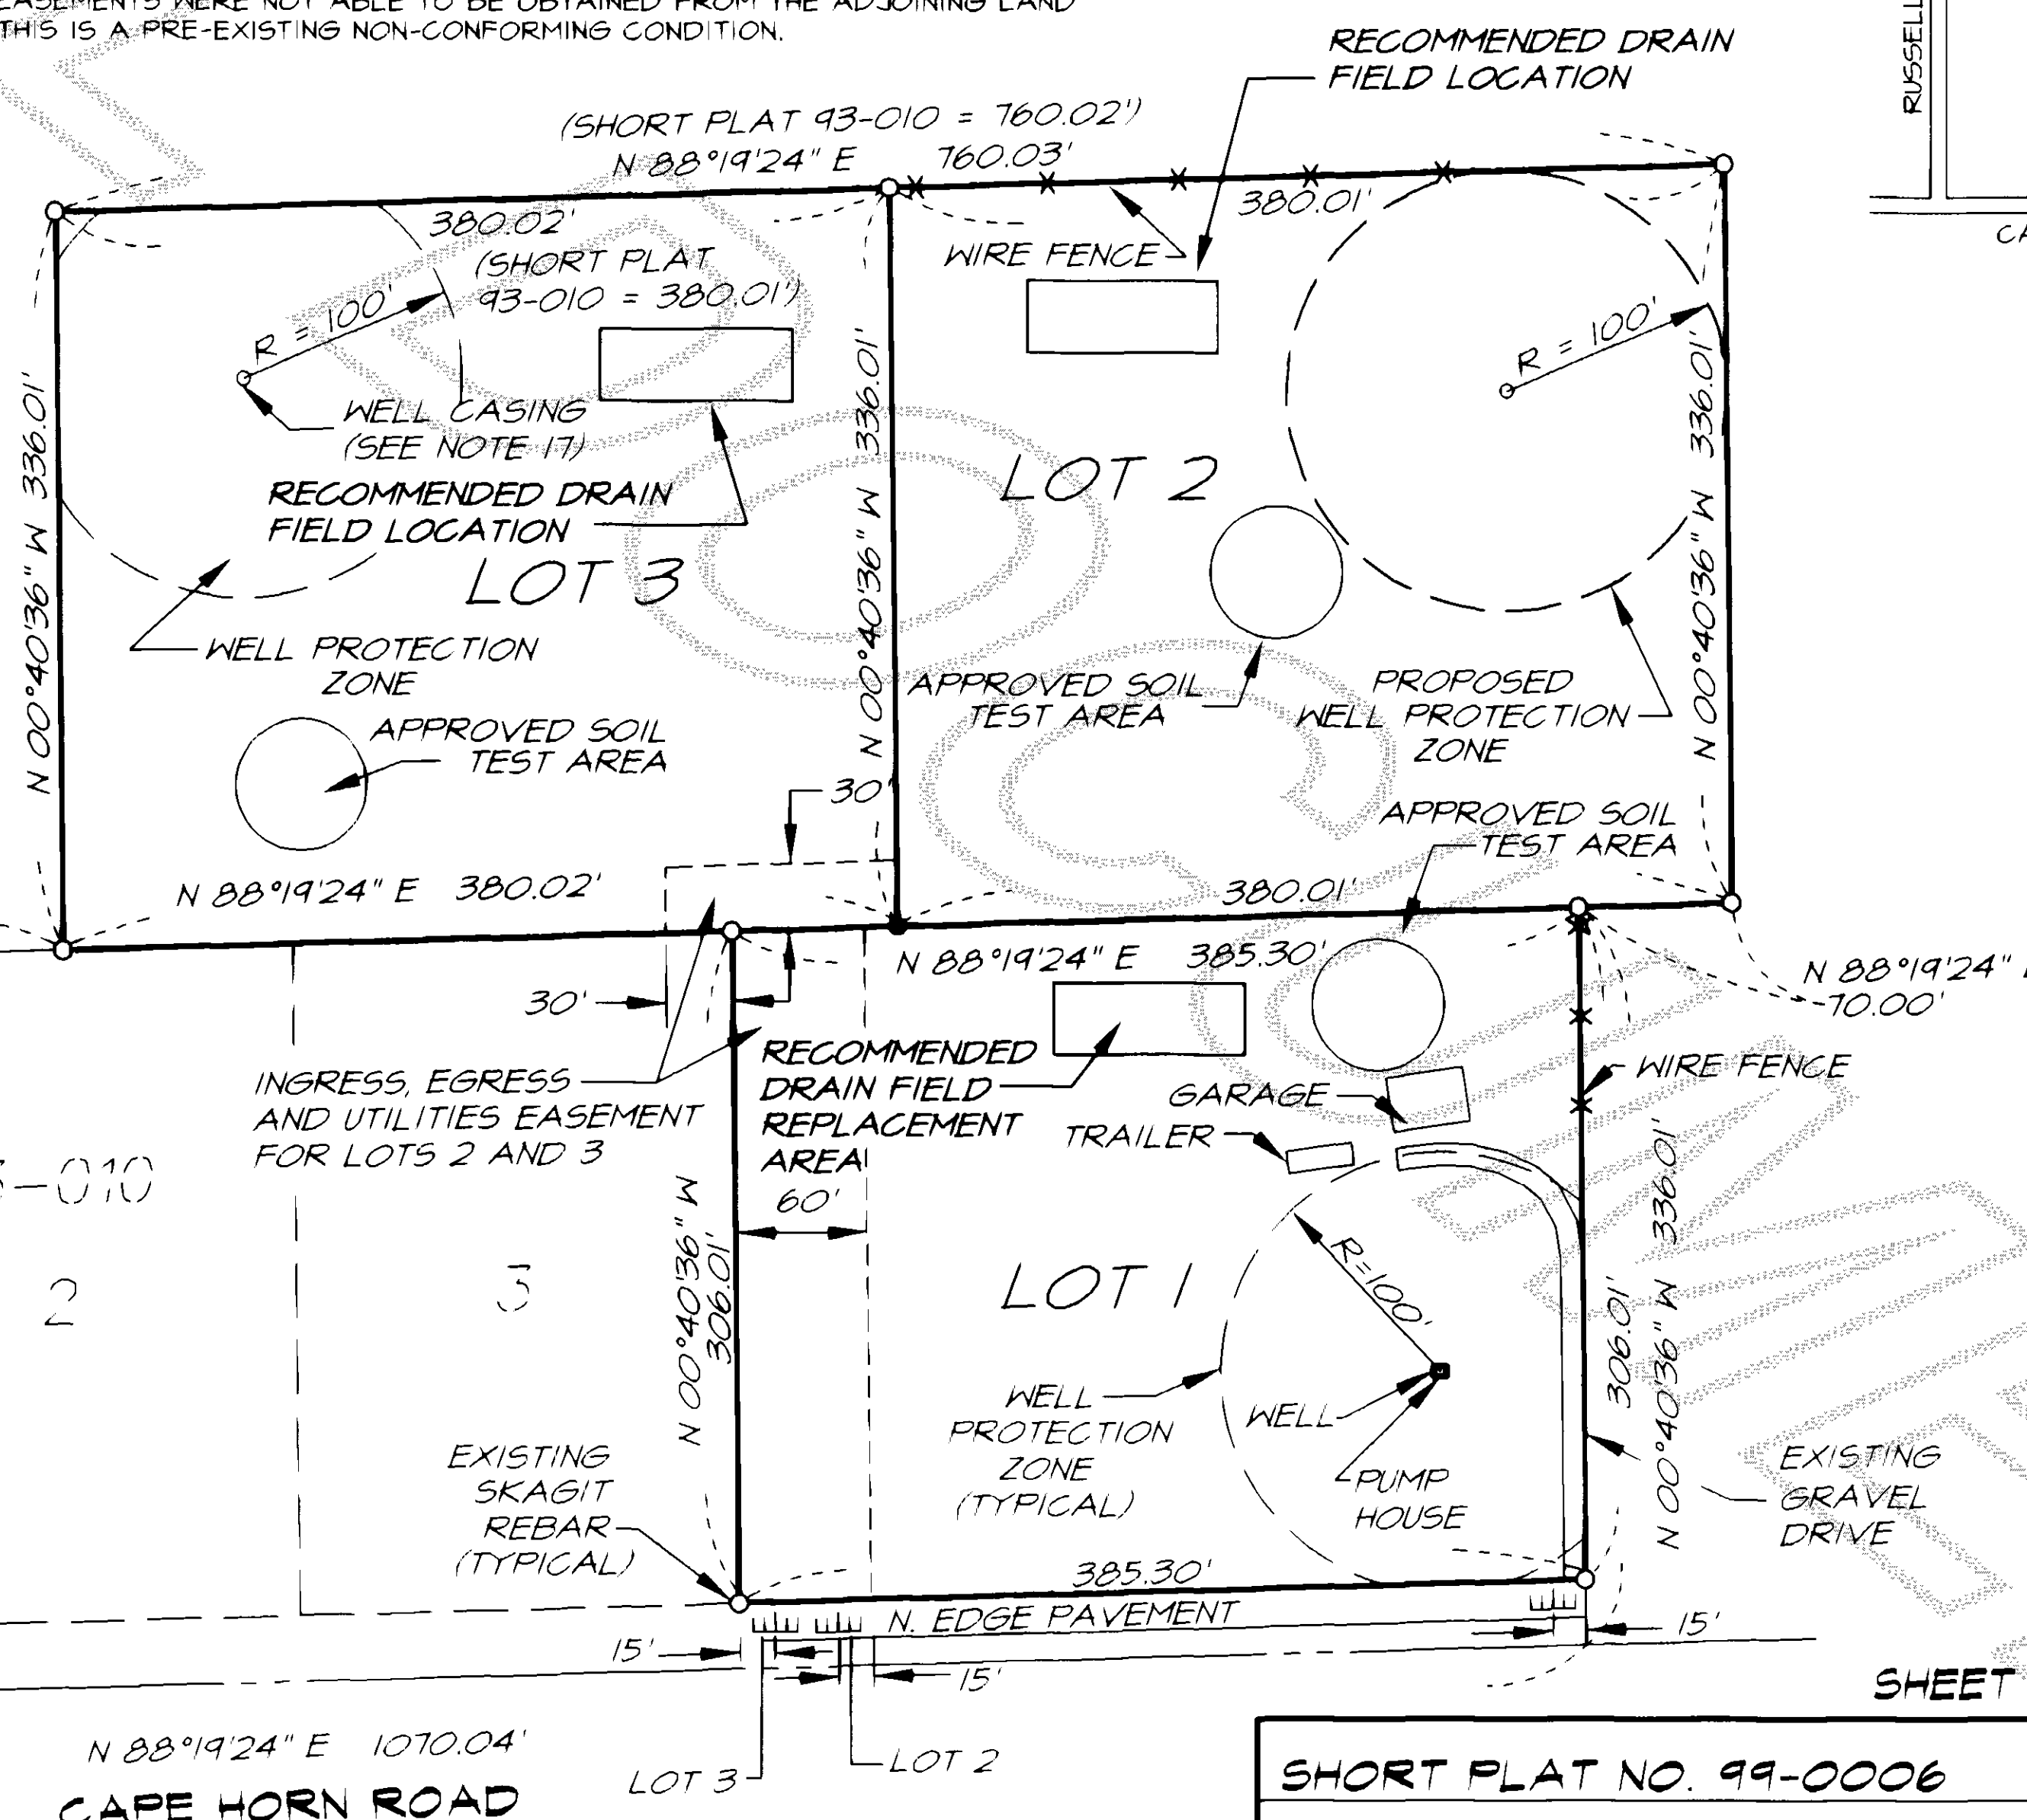 EASEMENTS WERE NOT ABLE TO BE OBTAINED FROM THE ADJOINING LAND
THIS IS A PRE-EXISTING NON-CONFORMING CONDITION.
RECOMMENDED DRAIN
FIELD LOCATION
RUSSELL
(SHORT PLAT 93-010 = 760.02')
N 88°19'24" E 760.03'
380.02'
(SHORT PLAT
93-010 = 380.01')
380.01'
WIRE FENCE
R = 100'
R = 100'
WELL CASING
(SEE NOTE 17)
RECOMMENDED DRAIN
FIELD LOCATION
LOT 3
LOT 2
N 00°40'36" W 336.01'
N 00°40'36" W 336.01'
N 00°40'36" W 336.01'
WELL PROTECTION
ZONE
APPROVED SOIL
TEST AREA
APPROVED SOIL
TEST AREA
PROPOSED
WELL PROTECTION
ZONE
30'
APPROVED SOIL
TEST AREA
N 88°19'24" E 380.02'
380.01'
N 88°19'24" E 385.30'
N 88°19'24"
70.00'
30'
INGRESS, EGRESS
AND UTILITIES EASEMENT
FOR LOTS 2 AND 3
RECOMMENDED
DRAIN FIELD
REPLACEMENT
AREA
60'
GARAGE
TRAILER
WIRE FENCE
-010
2
3
N 00°40'36" W
306.01'
LOT 1
R=100'
306.01'
N 00°40'36" W 336.01'
WELL
PROTECTION
ZONE
(TYPICAL)
WELL
PUMP
HOUSE
EXISTING
GRAVEL
DRIVE
EXISTING
SKAGIT
REBAR
(TYPICAL)
385.30'
N. EDGE PAVEMENT
15'
15'
15'
LOT 3
LOT 2
N 88°19'24" E 1070.04'
CAPE HORN ROAD
SHEET
SHORT PLAT NO. 99-0006